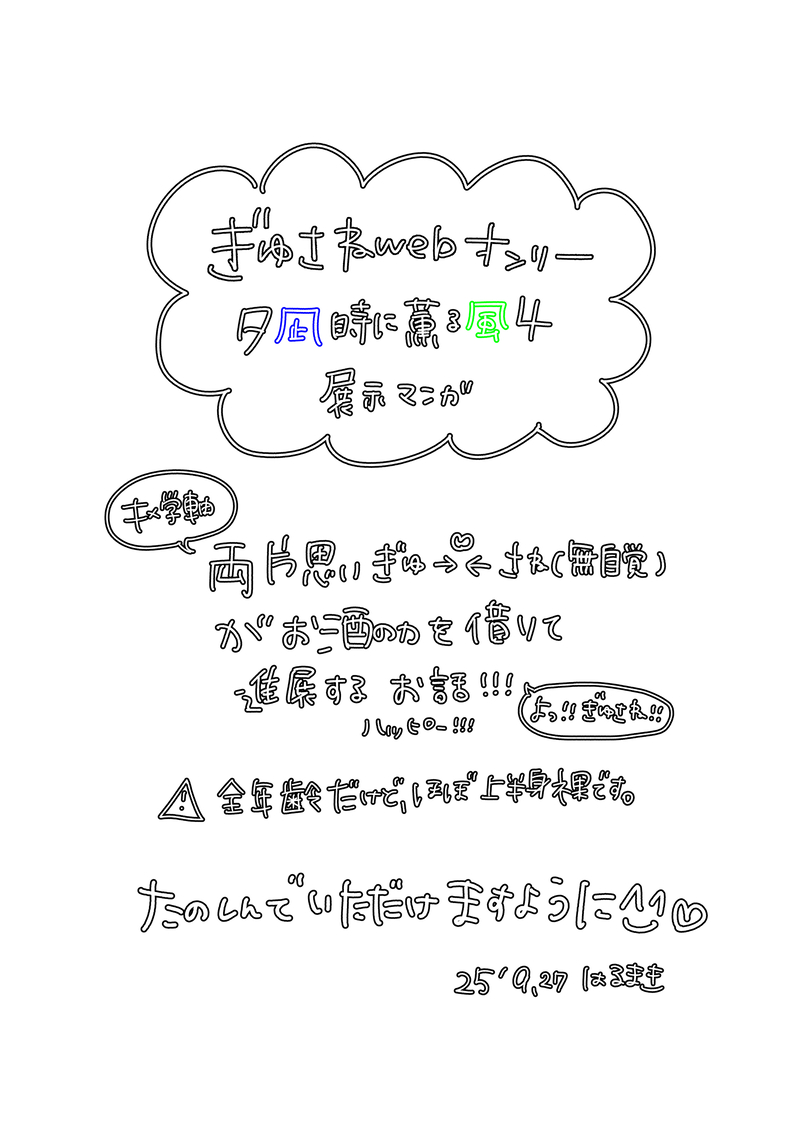 ぎゆさねwebオンリー
夕凪時に薫る風4
展示マンガ
キメ学軸
両片思いぎゆ→♡←さね(無自覚)
がお酒の力を借りて
進展するお話!!!
ハッピー!!!
よっ!!ぎゆさね!!
⚠全年齢だけど、ほぼ上半身裸です。
たのしんでいただけますように^^♡
25'9.27 はるまき